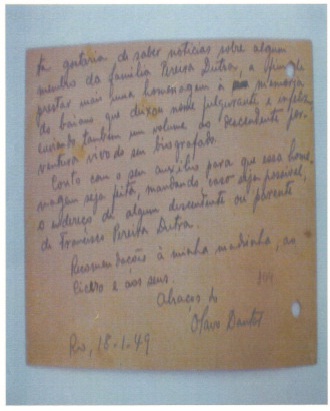 gostaria de saber notícias sobre algum
membro da família Pereira Dutra, a fim de
prestar mais uma homenagem à memória
do baiano que deixou nome fulgurante e
também um volume ao descendente por-
ventura vivo do seu biografado.
Conto com o seu auxílio para que essa home-
nagem seja feita, mandando caso seja possível,
o endereço de algum descendente ou parente
de Francisco Pereira Dutra.
Recomendações à minha madrinha, ao
Cicero e aos seus.
Abraços do
Olavo Dantas
Rio, 18-1-49